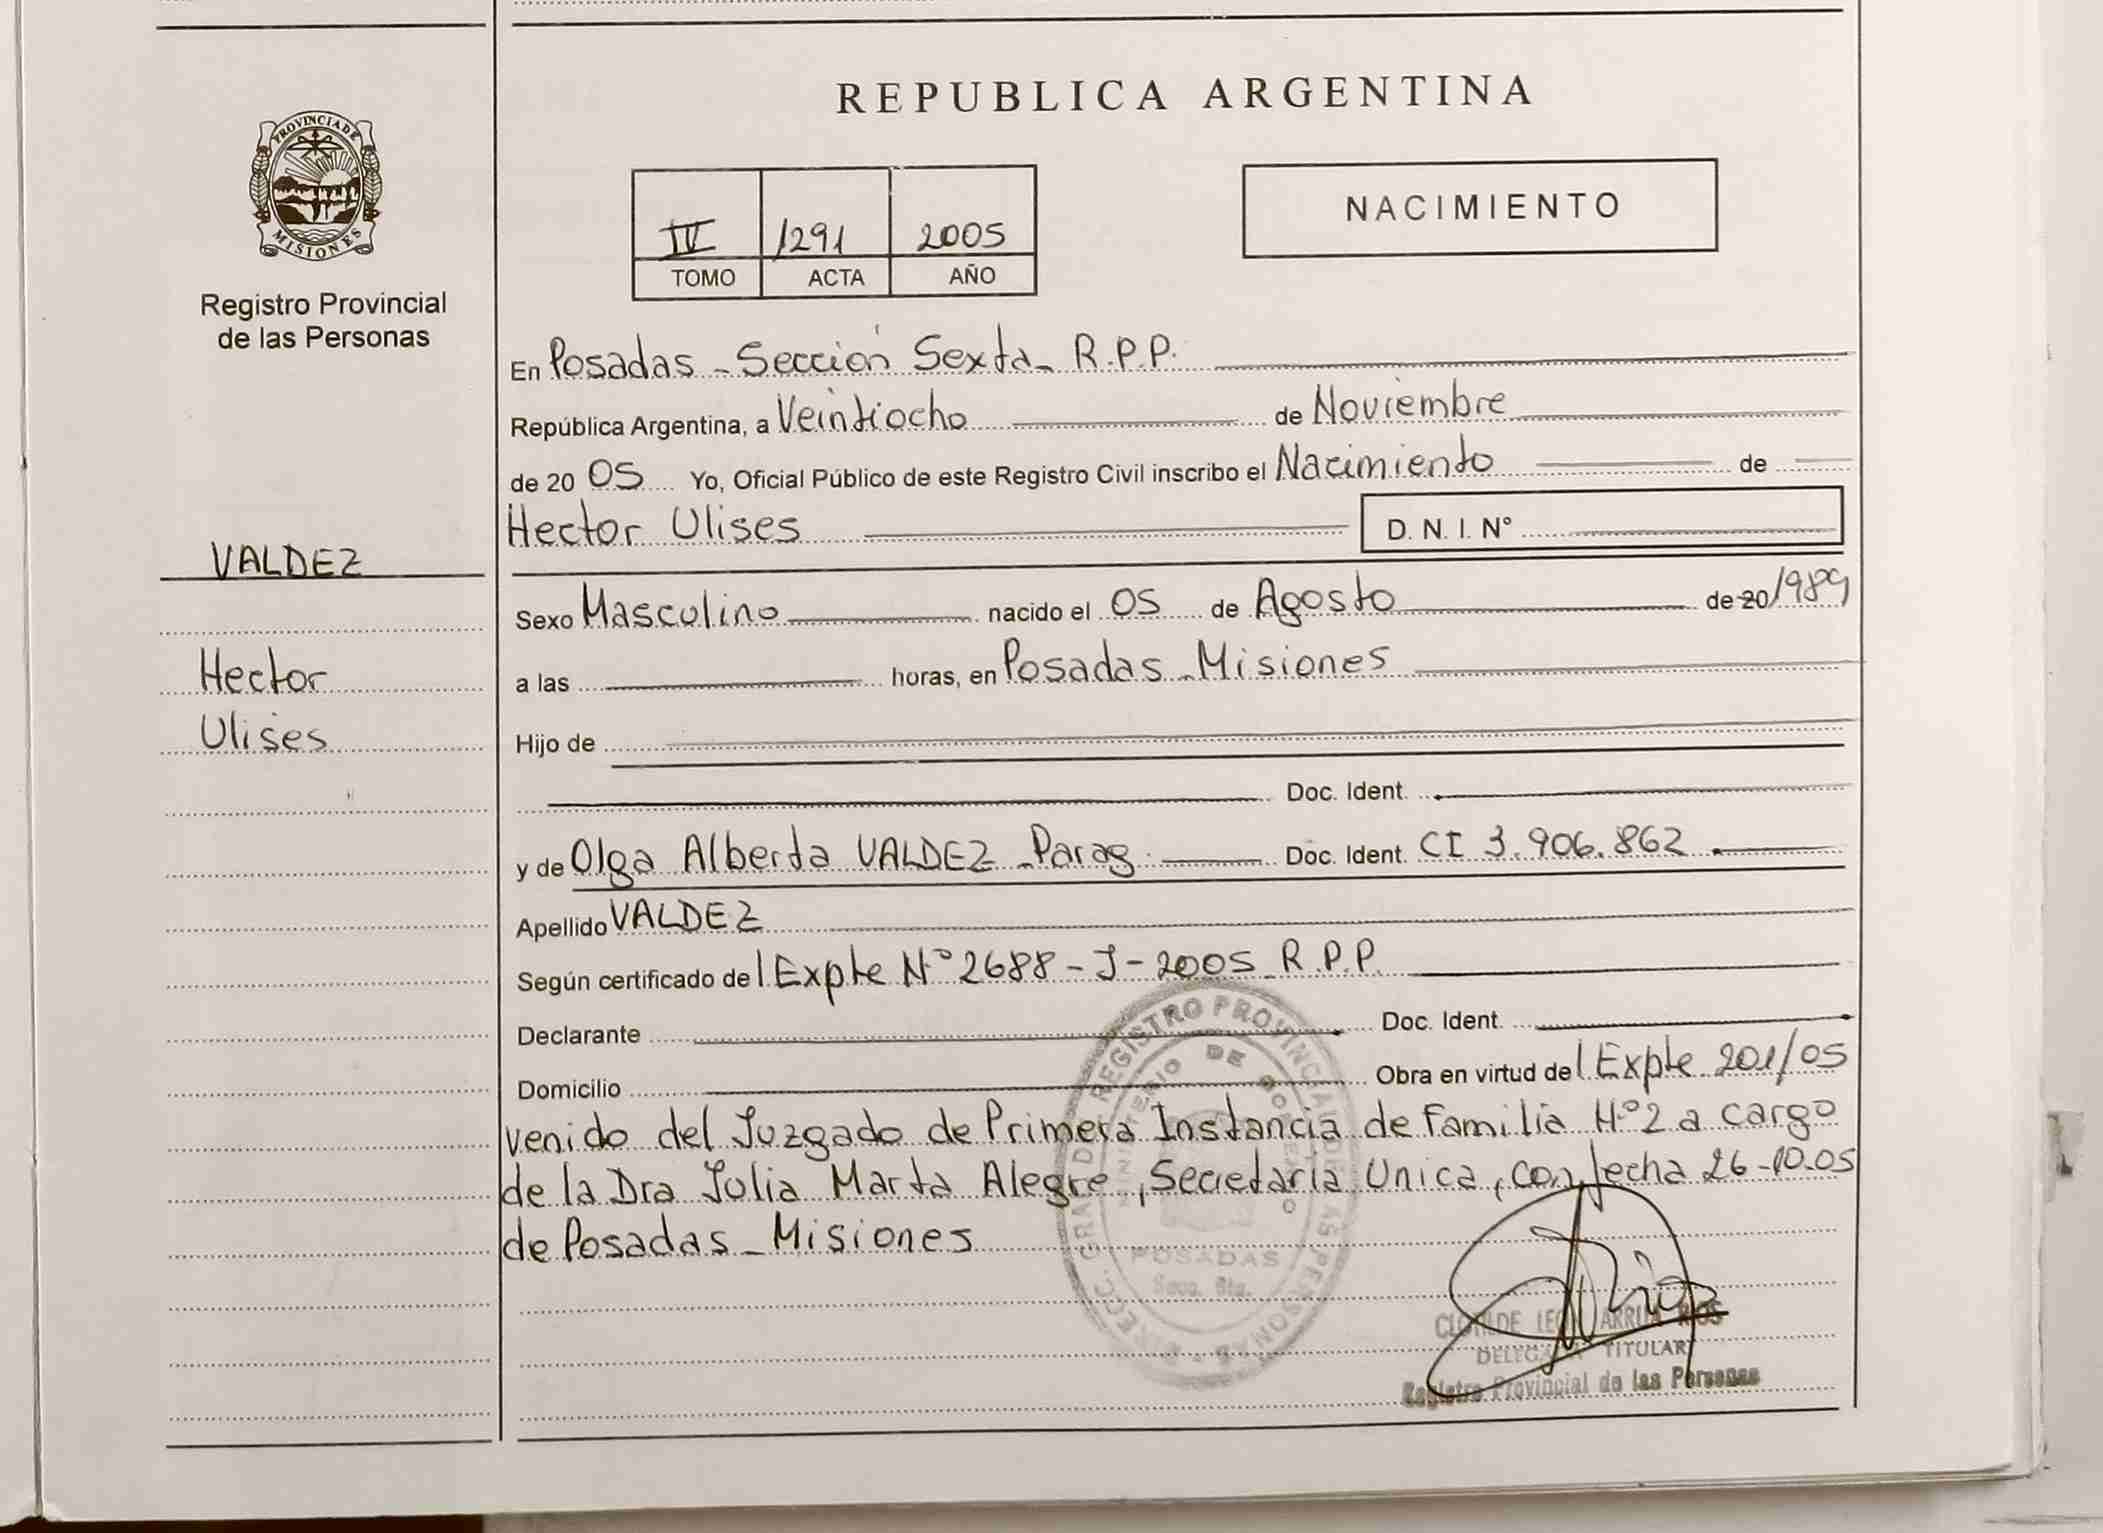 PROVINCIA DE
MISIONES
Registro Provincial
de las Personas
VALDEZ
Hector
Ulises
REPUBLICA ARGENTINA
IV 1291 2005
TOMO ACTA AÑO
NACIMIENTO
En Posadas - Sección Sexta - R.P.P.
República Argentina, a Veintiocho de Noviembre
de 20 05 Yo, Oficial Público de este Registro Civil inscribo el Nacimiento de
Hector Ulises D. N. I. N°
Sexo Masculino nacido el 05 de Agosto de 20 1989
a las horas, en Posadas - Misiones
Hijo de
Doc. Ident.
y de Olga Alberta VALDEZ - Parag. Doc. Ident. CI 3.906.862
Apellido VALDEZ
Según certificado del Expte N° 2688 - J - 2005 R.P.P.
Declarante Doc. Ident.
Domicilio Obra en virtud del Expte 201/05
venido del Juzgado de Primera Instancia de Familia N° 2 a cargo
de la Dra Julia Marta Alegre, Secretaria Unica, con fecha 26-10-05
de Posadas - Misiones
DIRECC. GRAL. DE REGISTRO PROVINCIAL DE LAS PERSONAS
MINISTERIO DE GOBIERNO
POSADAS
Secc. 6ta.
RIOS
DELEGADA TITULAR
Registro Provincial de las Personas